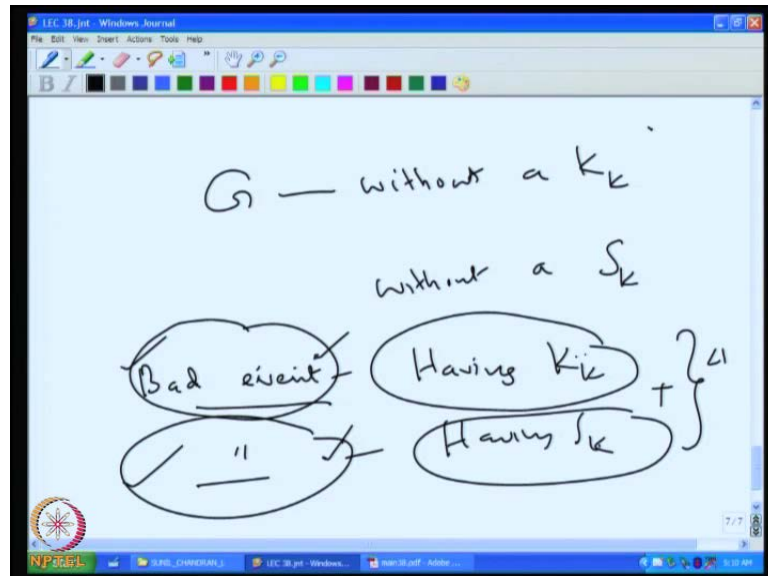 LEC 38.jnt - Windows Journal
File Edit View Insert Actions Tools Help
B I
G — without a K_k
without a S_k
Bad event - Having K_k
" - Having S_k + } <1
7/7
NPTEL SUNIL_CHANDRAN_L LEC 38.jnt - Windows... main38.pdf - Adobe ... 5:10 AM